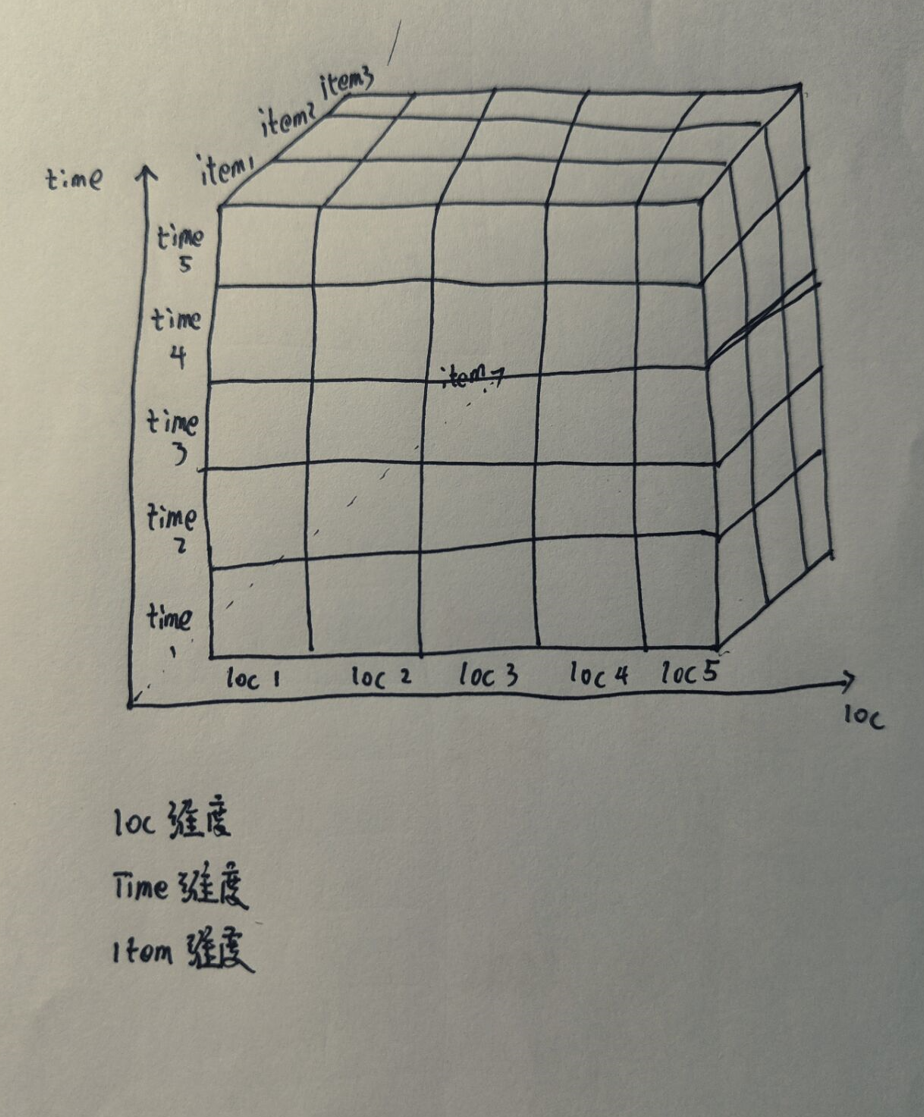 item3
item2
item1
time
time
5
time
4
item
time
3
time
2
time
1
loc 1
loc 2
loc 3
loc 4
loc 5
loc
loc 维度
Time 维度
Item 维度